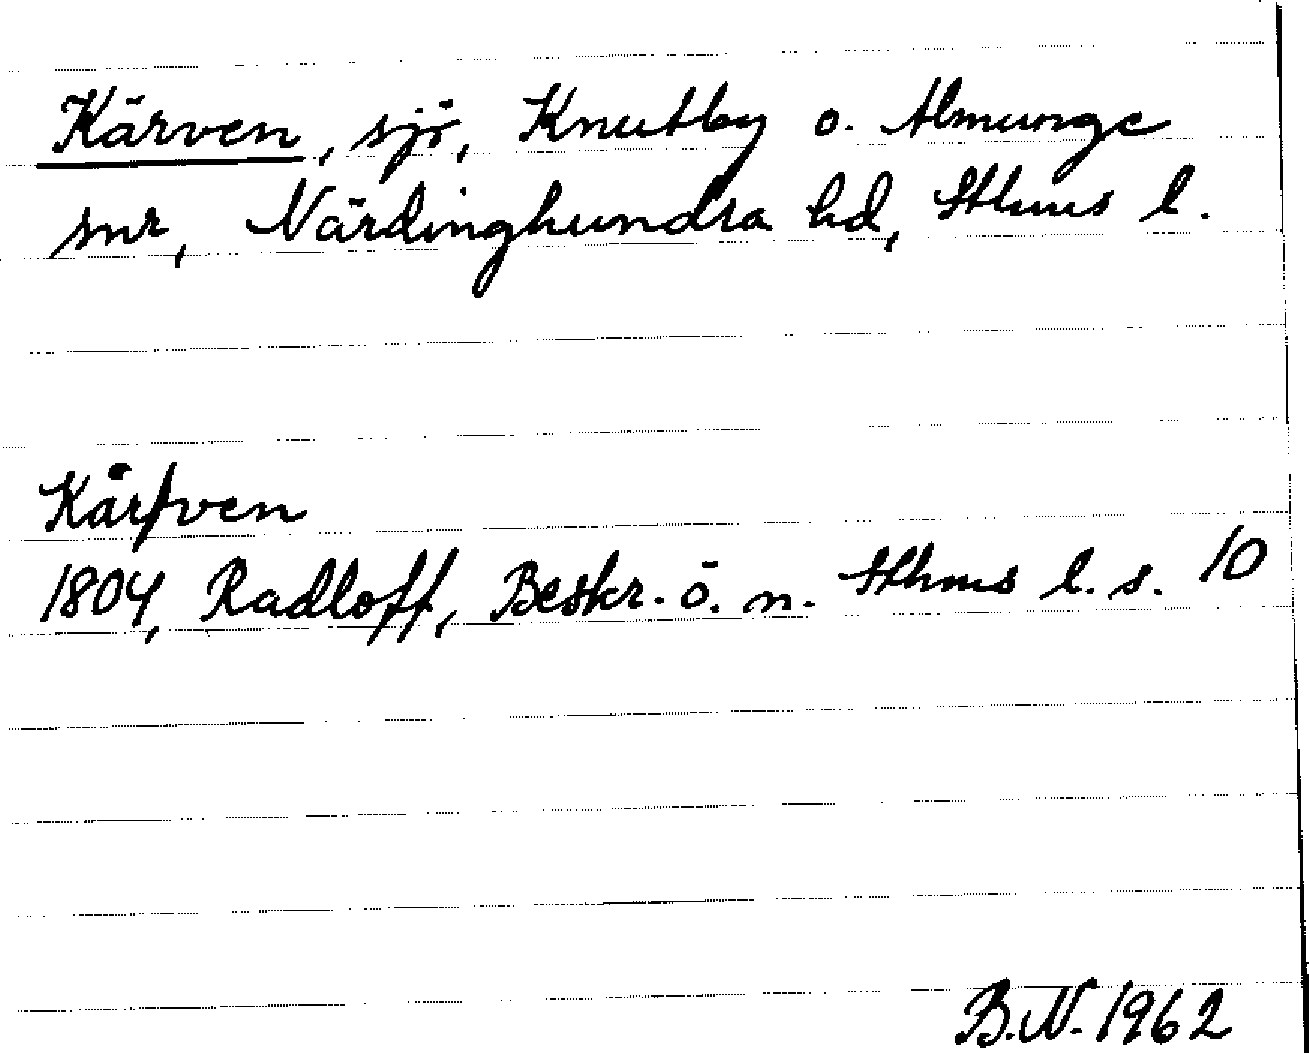 Kärven, sjö, Knutby o. Almunge
snr, Närdinghundra hd, Sthms l.
Kårfven
1804, Radloff, Beskr. ö. n. Sthms l. s. 10
B.N. 1962